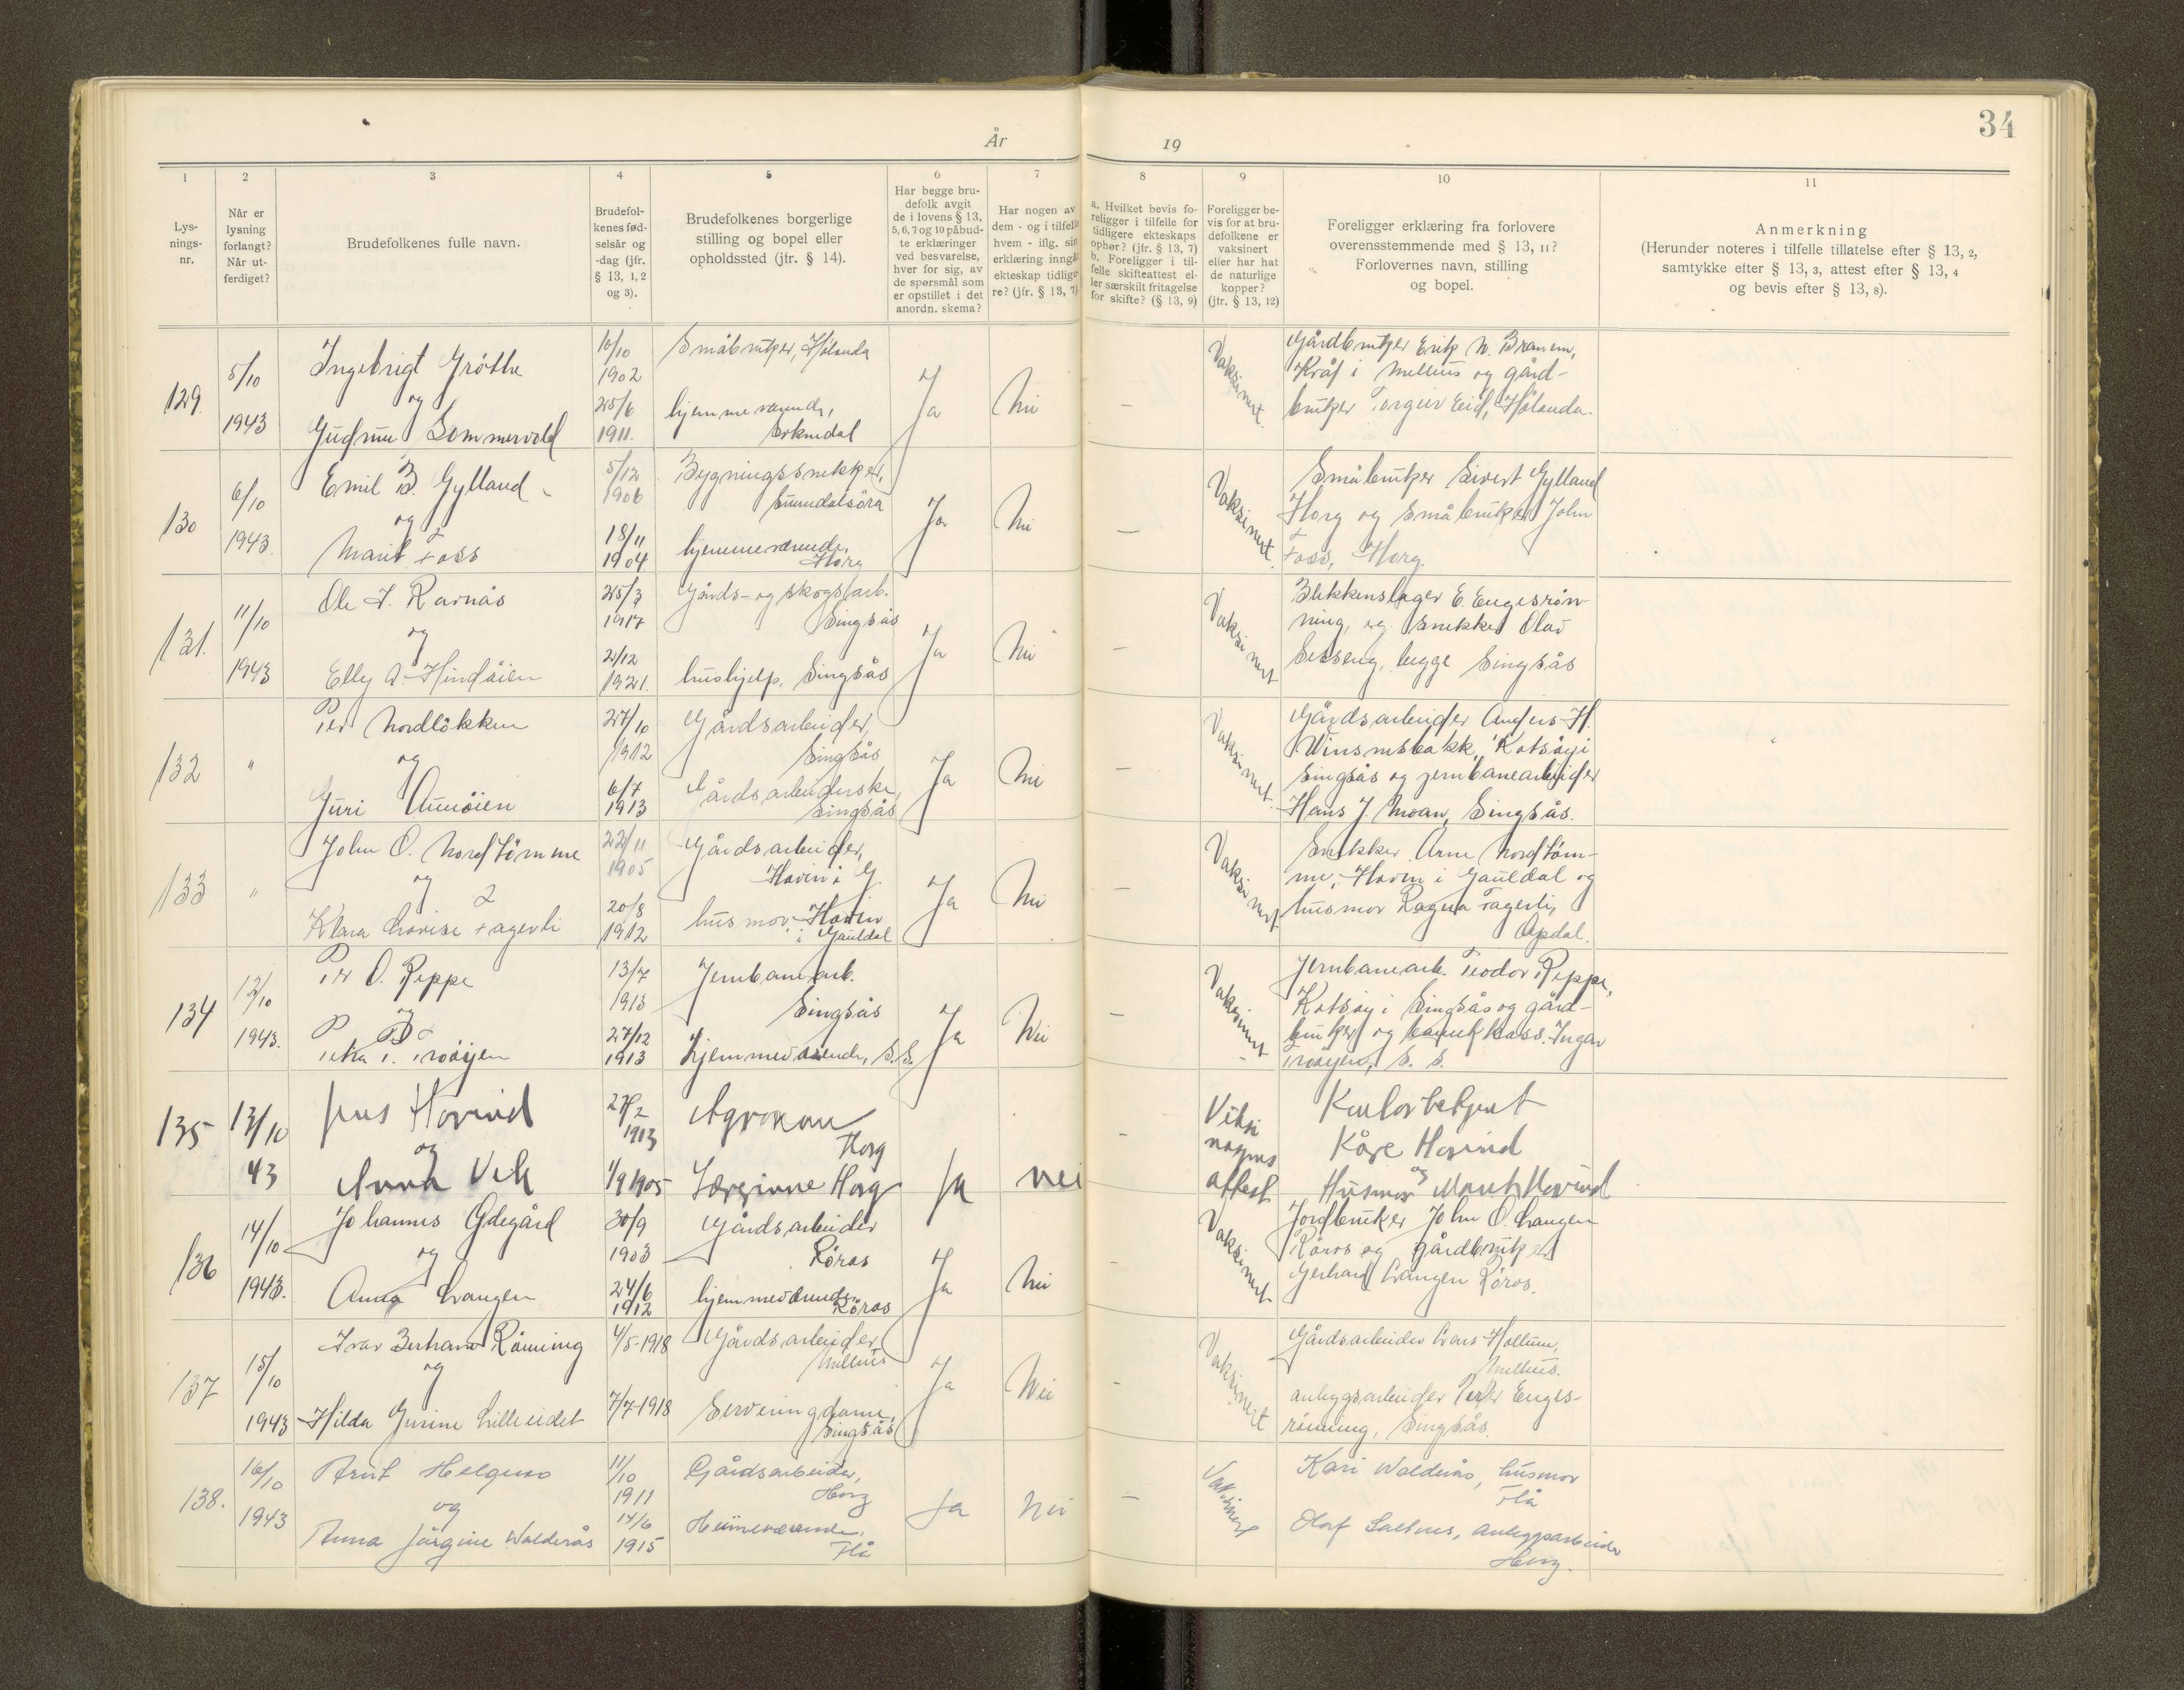 34
År
19
1
2
3
4
5
6
7
8
9
10
11
Lys-
nings-
nr.
Når er
lysning
forlangt?
Når ut-
ferdiget?
Brudefolkenes fulle navn.
Brudefol-
kenes fød-
selsår og
-dag (jfr.
§ 13, 1, 2
og 3).
Brudefolkenes borgerlige
stilling og bopel eller
opholdssted (jfr. § 14).
Har begge bru-
defolk avgit
de i lovens § 13,
5, 6, 7 og 10 påbud-
te erklæringer
ved besvarelse,
hver for sig, av
de spørsmål som
er opstillet i det
anordn. skema?
Har nogen av
dem - og i tilfelle
hvem - iflg. sin
erklæring inngå
ekteskap tidlige
re? (jfr. § 13, 7)
a. Hvilket bevis fo-
religger i tilfelle for
tidligere ekteskaps
ophør? (jfr. § 13, 7)
b. Foreligger i til-
felle skifteattest el-
ler særskilt fritagelse
for skifte? (§ 13, 9)
Foreligger be-
vis for at bru-
defolkene er
vaksinert
eller har hat
de naturlige
kopper?
(jfr. § 13, 12)
Foreligger erklæring fra forlovere
overensstemmende med § 13, 11?
Forlovernes navn, stilling
og bopel.
Anmerkning
(Herunder noteres i tilfelle tillatelse efter § 13, 2,
samtykke efter § 13, 3, attest efter § 13, 4
og bevis efter § 13, 8).
129.
5/10
1943
Ingebrigt Gröthe
og
Gudrun Sommervold
10/10
1902
25/6
1911.
Småbruker, Hölonda
hjemmeværende,
Soknedal
Ja
Nei
—
Vaksinert.
Gårdbruker Erik N. Branem,
Kvål i Melhus og gård-
bruker Torgeir Eid, Hölonda.
130
6/10
1943.
Emil B. Gylland
og
Marit Foss
5/12
1906
18/11
1904
Bygningssnekker,
Sunndalsöra
hjemmeværende,
Horg
Ja
Nei
—
Vaksinert.
Småbruker Sivert Gylland
Horg og Småbruker John
Foss, Horg.
131.
11/10
1943
Ole J. Ramås
og
Elly A. Hindöien
25/3
1917
2/12
1921.
Gårds- og skogsarb.
Singsås
hushjelp, Singsås
Ja
Nei
—
Vaksinert
Blikkenslager E. Engesrön-
ning, og snekker Olav
Setseng, begge Singsås
132
"
Per Nordlökken
og
Guri Aunöien
27/10
1912
6/7
1913
Gårdsarbeider,
Singsås
Gårdsarbeiderske,
Singsås
Ja
Nei
—
Vaksinert.
Gårdsarbeider Anders H.
Winsnesbakk, Kotsöy i
Singsås og jernbanearbeider
Hans J. Moan, Singsås.
133
"
John O. Nordtömme
og
Klara Lovise Fagerli
22/11
1905
20/8
1912
Gårdsarbeider,
Havin i G.
husmor, Havin
i Gauldal
Ja
Nei
—
Vaksinert
Snekker Arne Nordtöm-
me, Havin i Gauldal og
husmor Ragna Fagerli,
Opdal.
134
12/10
1943.
Per O. Reppe
og
Petra T. Troöyen
13/7
1913
27/12
1913
Jernbanearb.
Singsås
hjemmeværende, S.S.
Ja
Nei
—
Vaksinert
Jernbanearb. Teodor Reppe,
Kotsöy i Singsås og gård-
bruker og bankkass. Ingar
Troöyen, S. S.
135
13/10
43
Jens Hovind
og
Anna Vik
27/2
1913
1/9 1905
Agronom
Horg
Lærerinne Horg
Ja
nei
-
attest
Kontorbetjent
Kåre Hovind
og
Husmor Marit Hovind
136
14/10
1943.
Johannes Ödegård
og
Anna Langen
30/9
1903
24/6
1912
Gårdsarbeider
Röros
hjemmeværende,
Röros
Ja
Nei
-
Vaksinert
Jordbruker John O. Langen
Röros og gårdbruker
Gerhard Langen Röros.
137
15/10
1943
Ivar Berhard Rönning
og
Hilda Gurine Lilleeidet
4/5-1918
7/7-1918
Gårdsarbeider
Melhus
Serveringdame,
Singsås
Ja
Nei
-
Vaksinert
Gårdsarbeider Lars Hollum,
Melhus.
anleggsarbeider Peder Enges-
rönning, Singsås.
138.
16/10
1943
Arnt Helgemo
og
Anna Jörgine Walderås
11/10
1911
14/6
1915
Gårdsarbeider,
Horg
Heimeværende,
Flå
Ja
Nei
—
Vaksinert
Kari Walderås, husmor
Flå
Olaf Saltnes, anleggsarbeider
Horg.